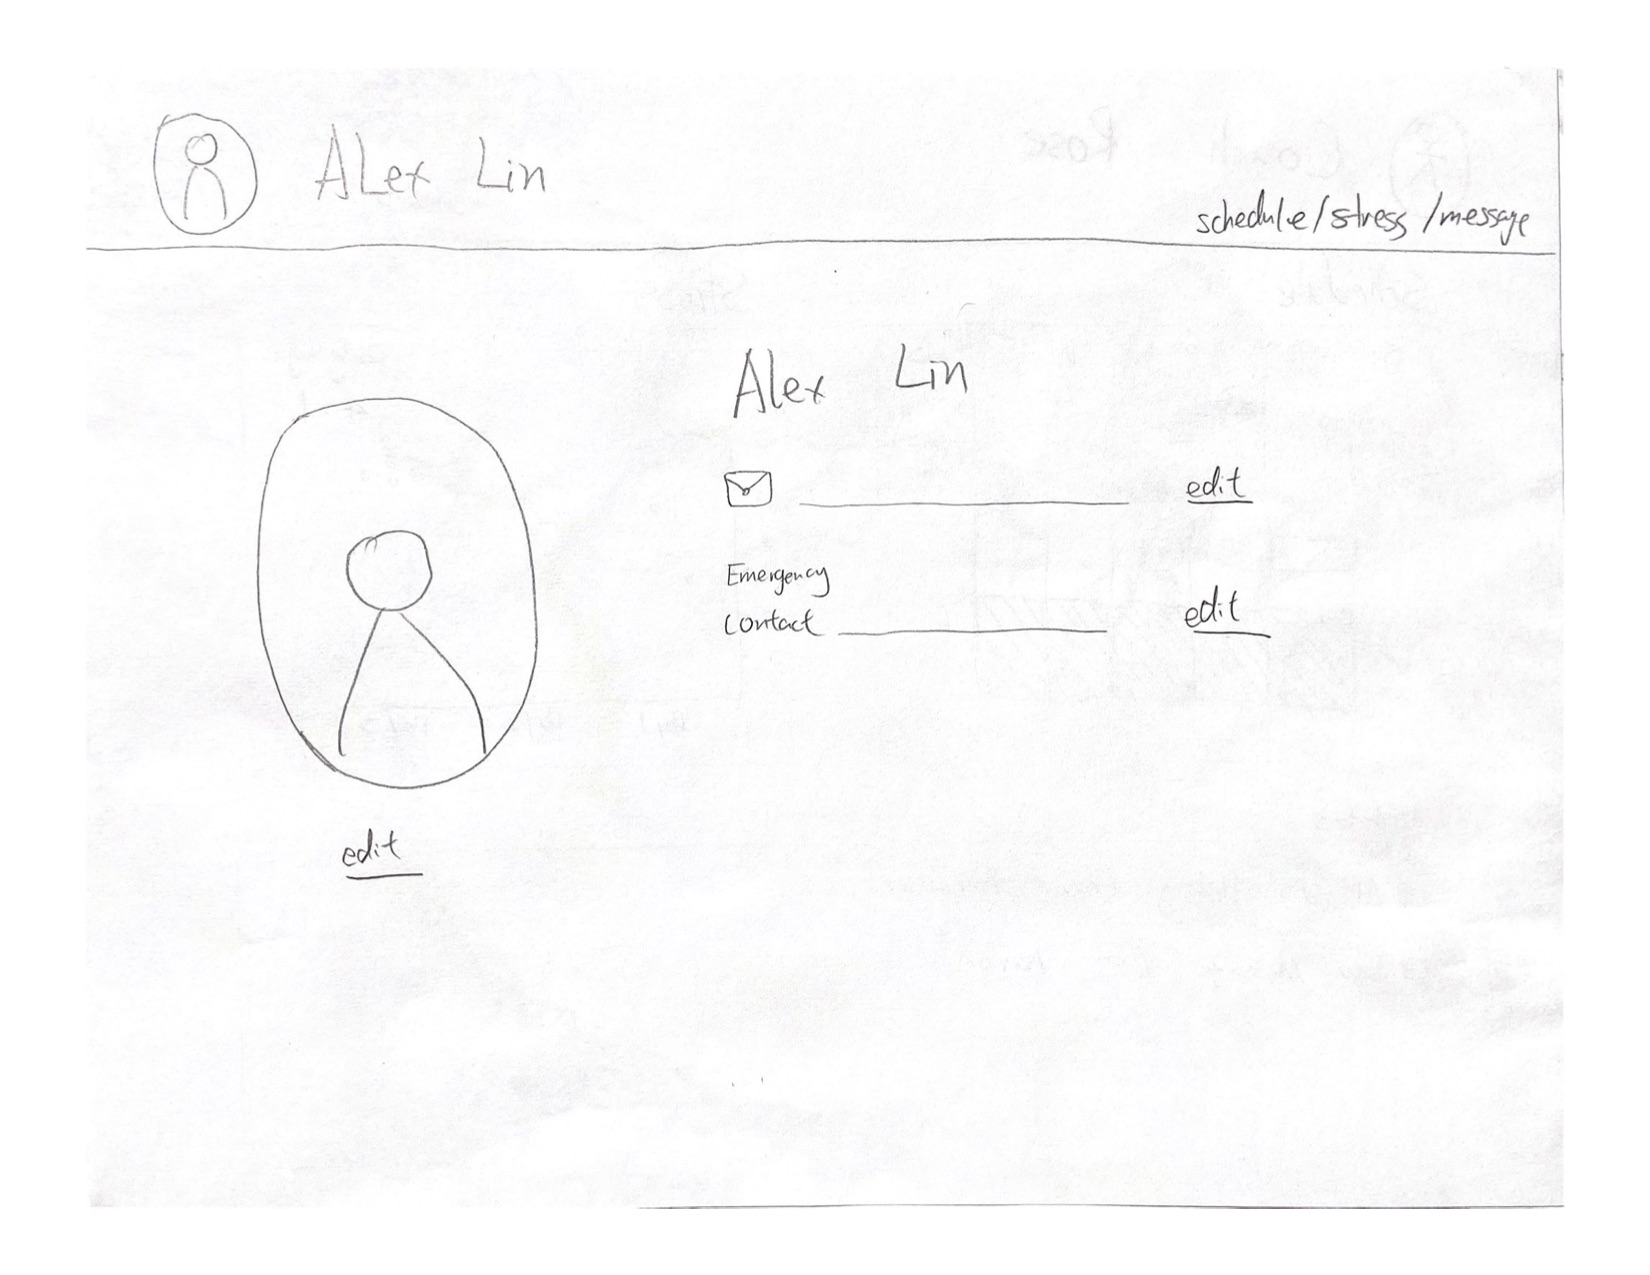 ALex Lin
schedule/stress/message
Alex Lin
edit
Emergency
Contact
edit
edit